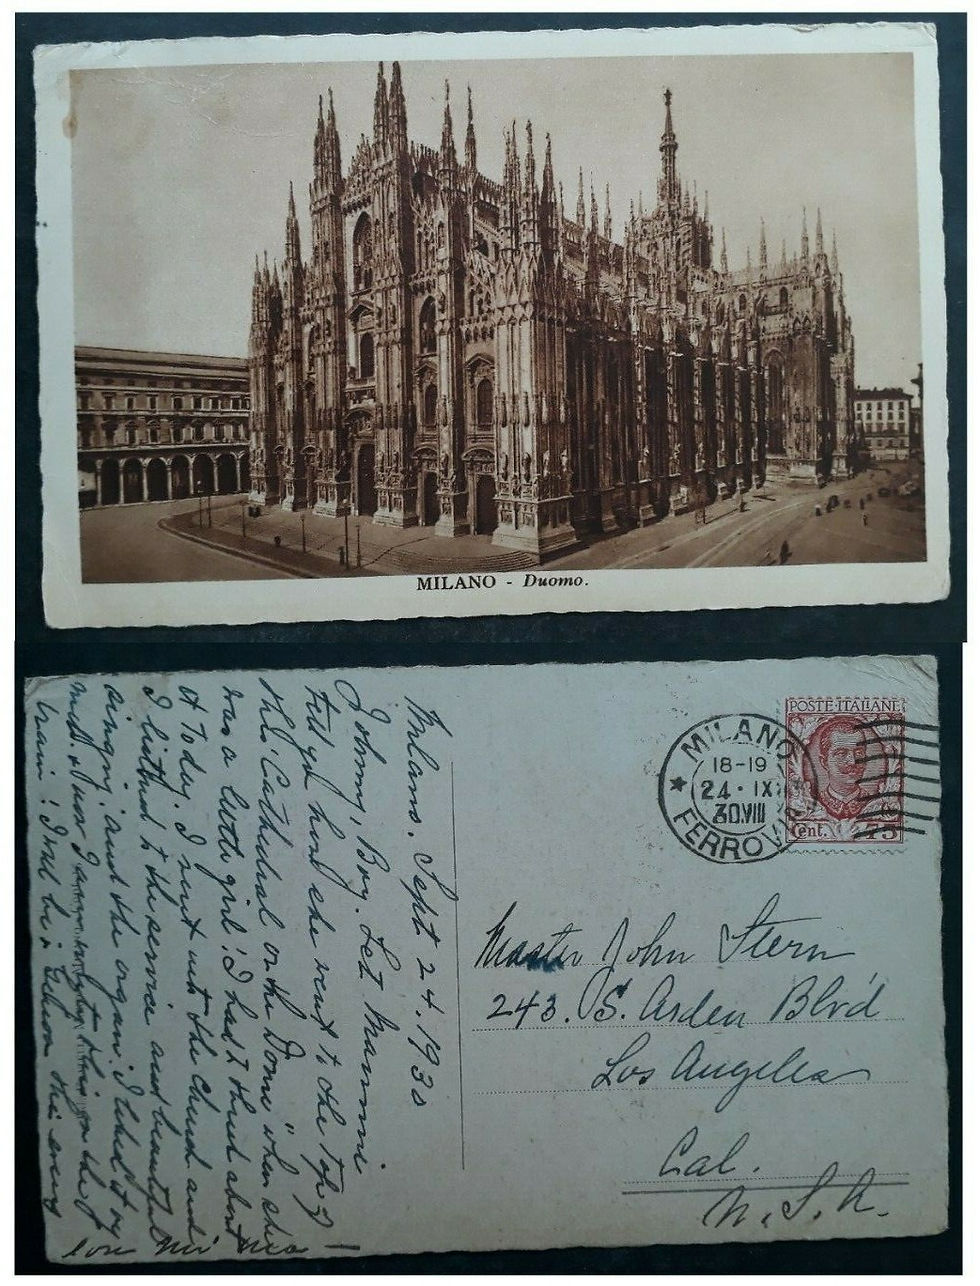 MILANO - Duomo.
POSTE·ITALIANE
Cent. 75
MILANO
18-19
24·IX
30.VIII
FERROV
Milano. Sept 24. 1930
Johnny, Boy. Let Mammi
tell you how she went to the top of
the Cathedral or the Dome when she
was a little girl! I had to think about
it today. I went into the church and
I listened to the service and beautiful
singing, and the organ. I liked it very
much. Now I to this on the
train! I will be in this evening
Master John Stern
243. S. Arden Blv'd
Los Angeles
Cal.
U.S.A.